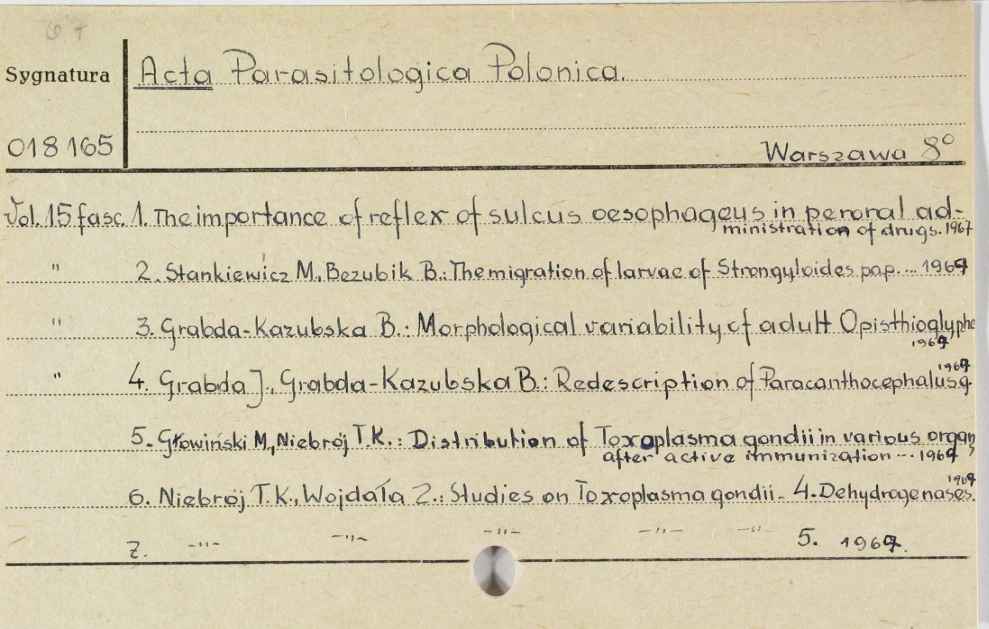 Sygnatura
Acta Parasitologica Polonica.
018165
Warszawa 8°
Vol. 15 fasc. 1. The importance of reflex of sulcus oesophageus in peroral ad-
ministration of drugs. 1967
" 2. Stankiewicz M., Bezubik B.: The migration of larvae of Strongyloides pap. ... 1967
" 3. Grabda-Kazubska B.: Morphological variability of adult Opisthioglyphe
1967
" 4. Grabda J., Grabda-Kazubska B.: Redescription of Paracanthocephalus g.
1967
5. Głowiński M., Niebrój T.K.: Distribution of Toxoplasma gondii in various organ
after active immunization ... 1967
6. Niebrój T.K., Wojdała Z.: Studies on Toxoplasma gondii - 4. Dehydrogenases.
1967
7. -"- -"- -"- -"- -"- 5. 1967.